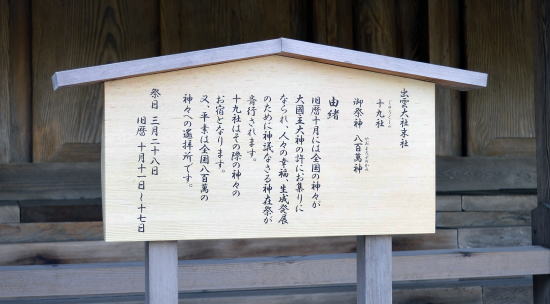 出雲大社末社
十九社
御祭神 八百萬神
やおよろずのかみ
由緒
旧暦十月には全国の神々が
大國主大神の許にお集りに
なられ、人々の幸福、生成発展
のために神議なさる神在祭が
斎行されます。
十九社はその際の神々の
お宿となります。
又、平素は全国八百萬の
神々への遥拝所です。
祭日 三月二十八日
旧暦 十月十一日~十七日